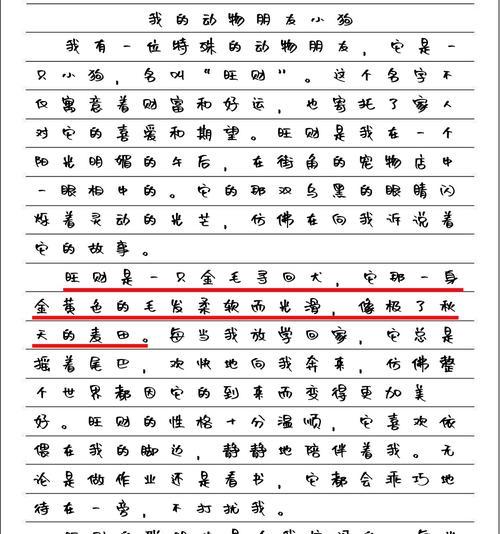 我的动物朋友小狗
我有一位特殊的动物朋友，它是一
只小狗，名叫“旺财”。这个名字不
仅寓意着财富和好运，也寄托了家人
对它的喜爱和期望。旺财是我在一个
阳光明媚的午后，在街角的宠物店中
一眼相中的。它的那双乌黑的眼睛闪
烁着灵动的光芒，仿佛在向我诉说着
它的故事。
旺财是一只金毛寻回犬，它那一身
金黄色的毛发柔软而光滑，像极了秋
天的麦田。每当我放学回家，它总是
摇着尾巴，欢快地向我奔来，仿佛整
个世界都因它的到来而变得更加美
好。旺财的性格十分温顺，它喜欢依
偎在我的脚边，静静地陪伴着我。无
论是做作业还是看书，它都会乖巧地
待在一旁，不打扰我。